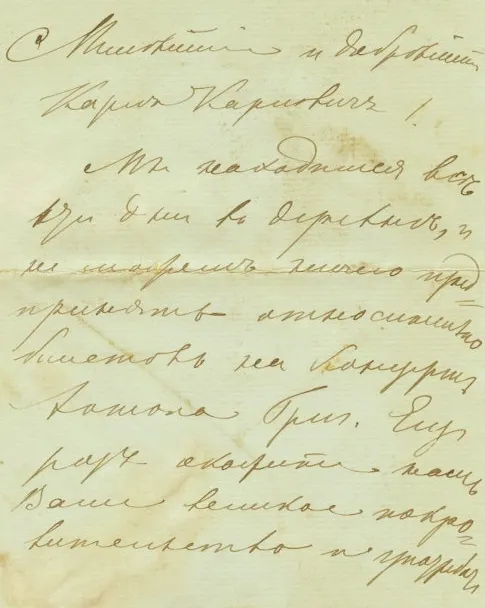 Милѣйшій и добрѣйшій
Карлъ Карловичъ!
Мы находимся всѣ
эти дни въ деревнѣ, и
не можемъ ничего пред=
принять относительно
билетовъ на Концертъ
Антона Григ. Еще
разъ окажите намъ
Ваше великое покро=
вительство и